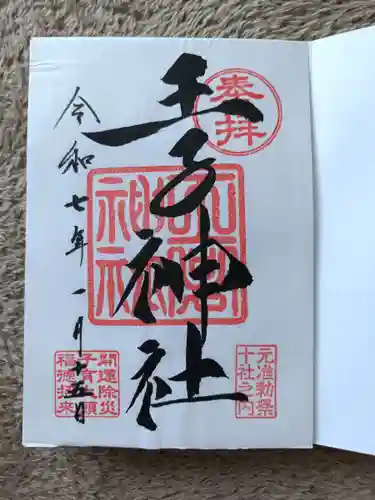 奉拝
王子神社
令和七年一月十五日
元准勅祭
十社之内
開運除災
福徳招来